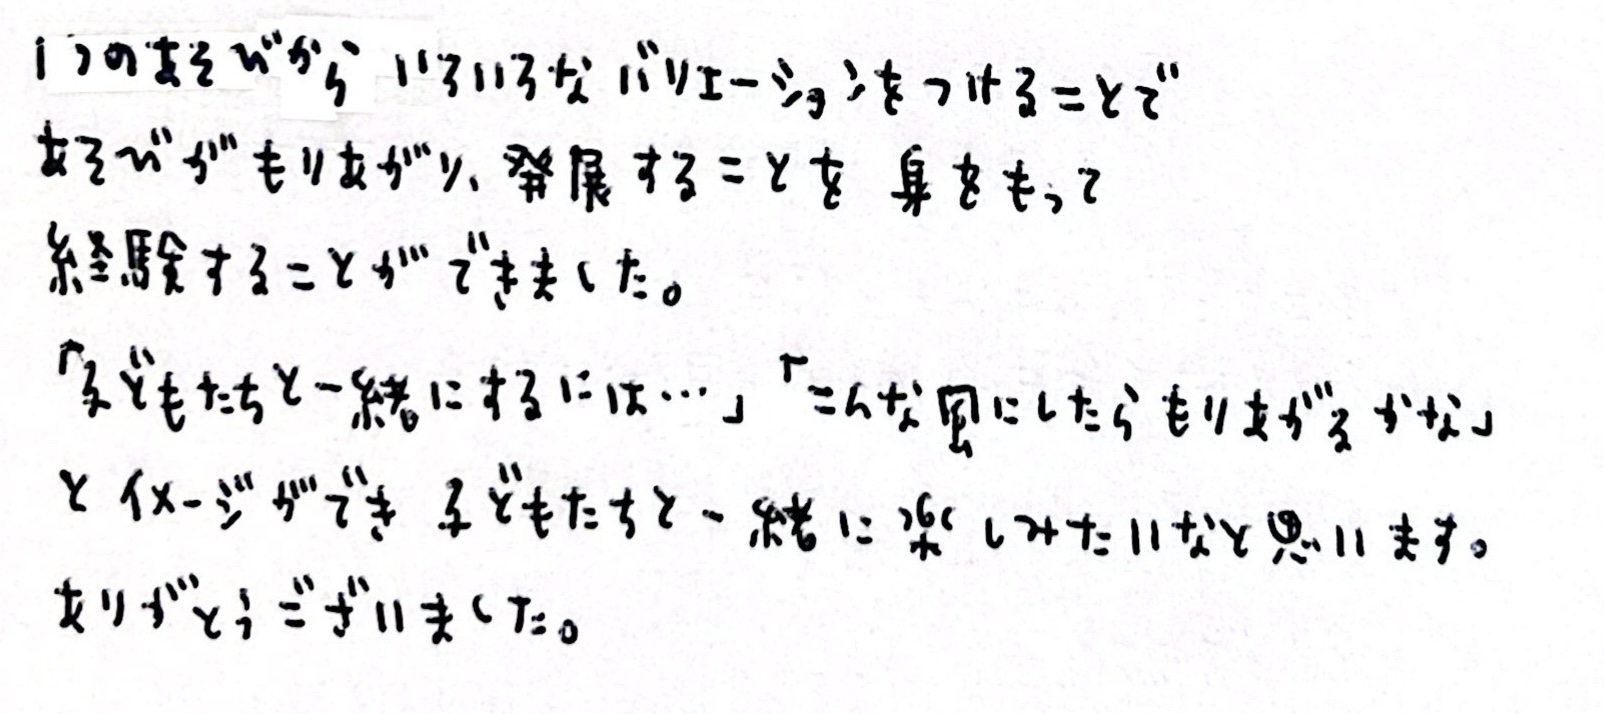 1つのあそびから いろいろなバリエーションをつけることで
あそびがもりあがり、発展することを 身をもって
経験することができました。
「子どもたちと一緒にするには…」「こんな風にしたらもりあがるかな」
とイメージができ 子どもたちと一緒に楽しみたいなと思います。
ありがとうございました。